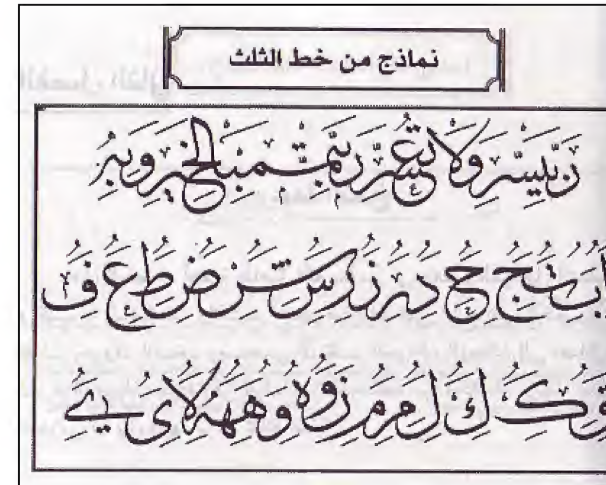 نماذج من خط الثلث
رب يسر ولا تعسر رب تمم بالخير وبه
ا ب ت ج ح د ر ز س ش ض ط ع ف
و ك ك ل م م ز و ه و ه ه لا ي ي